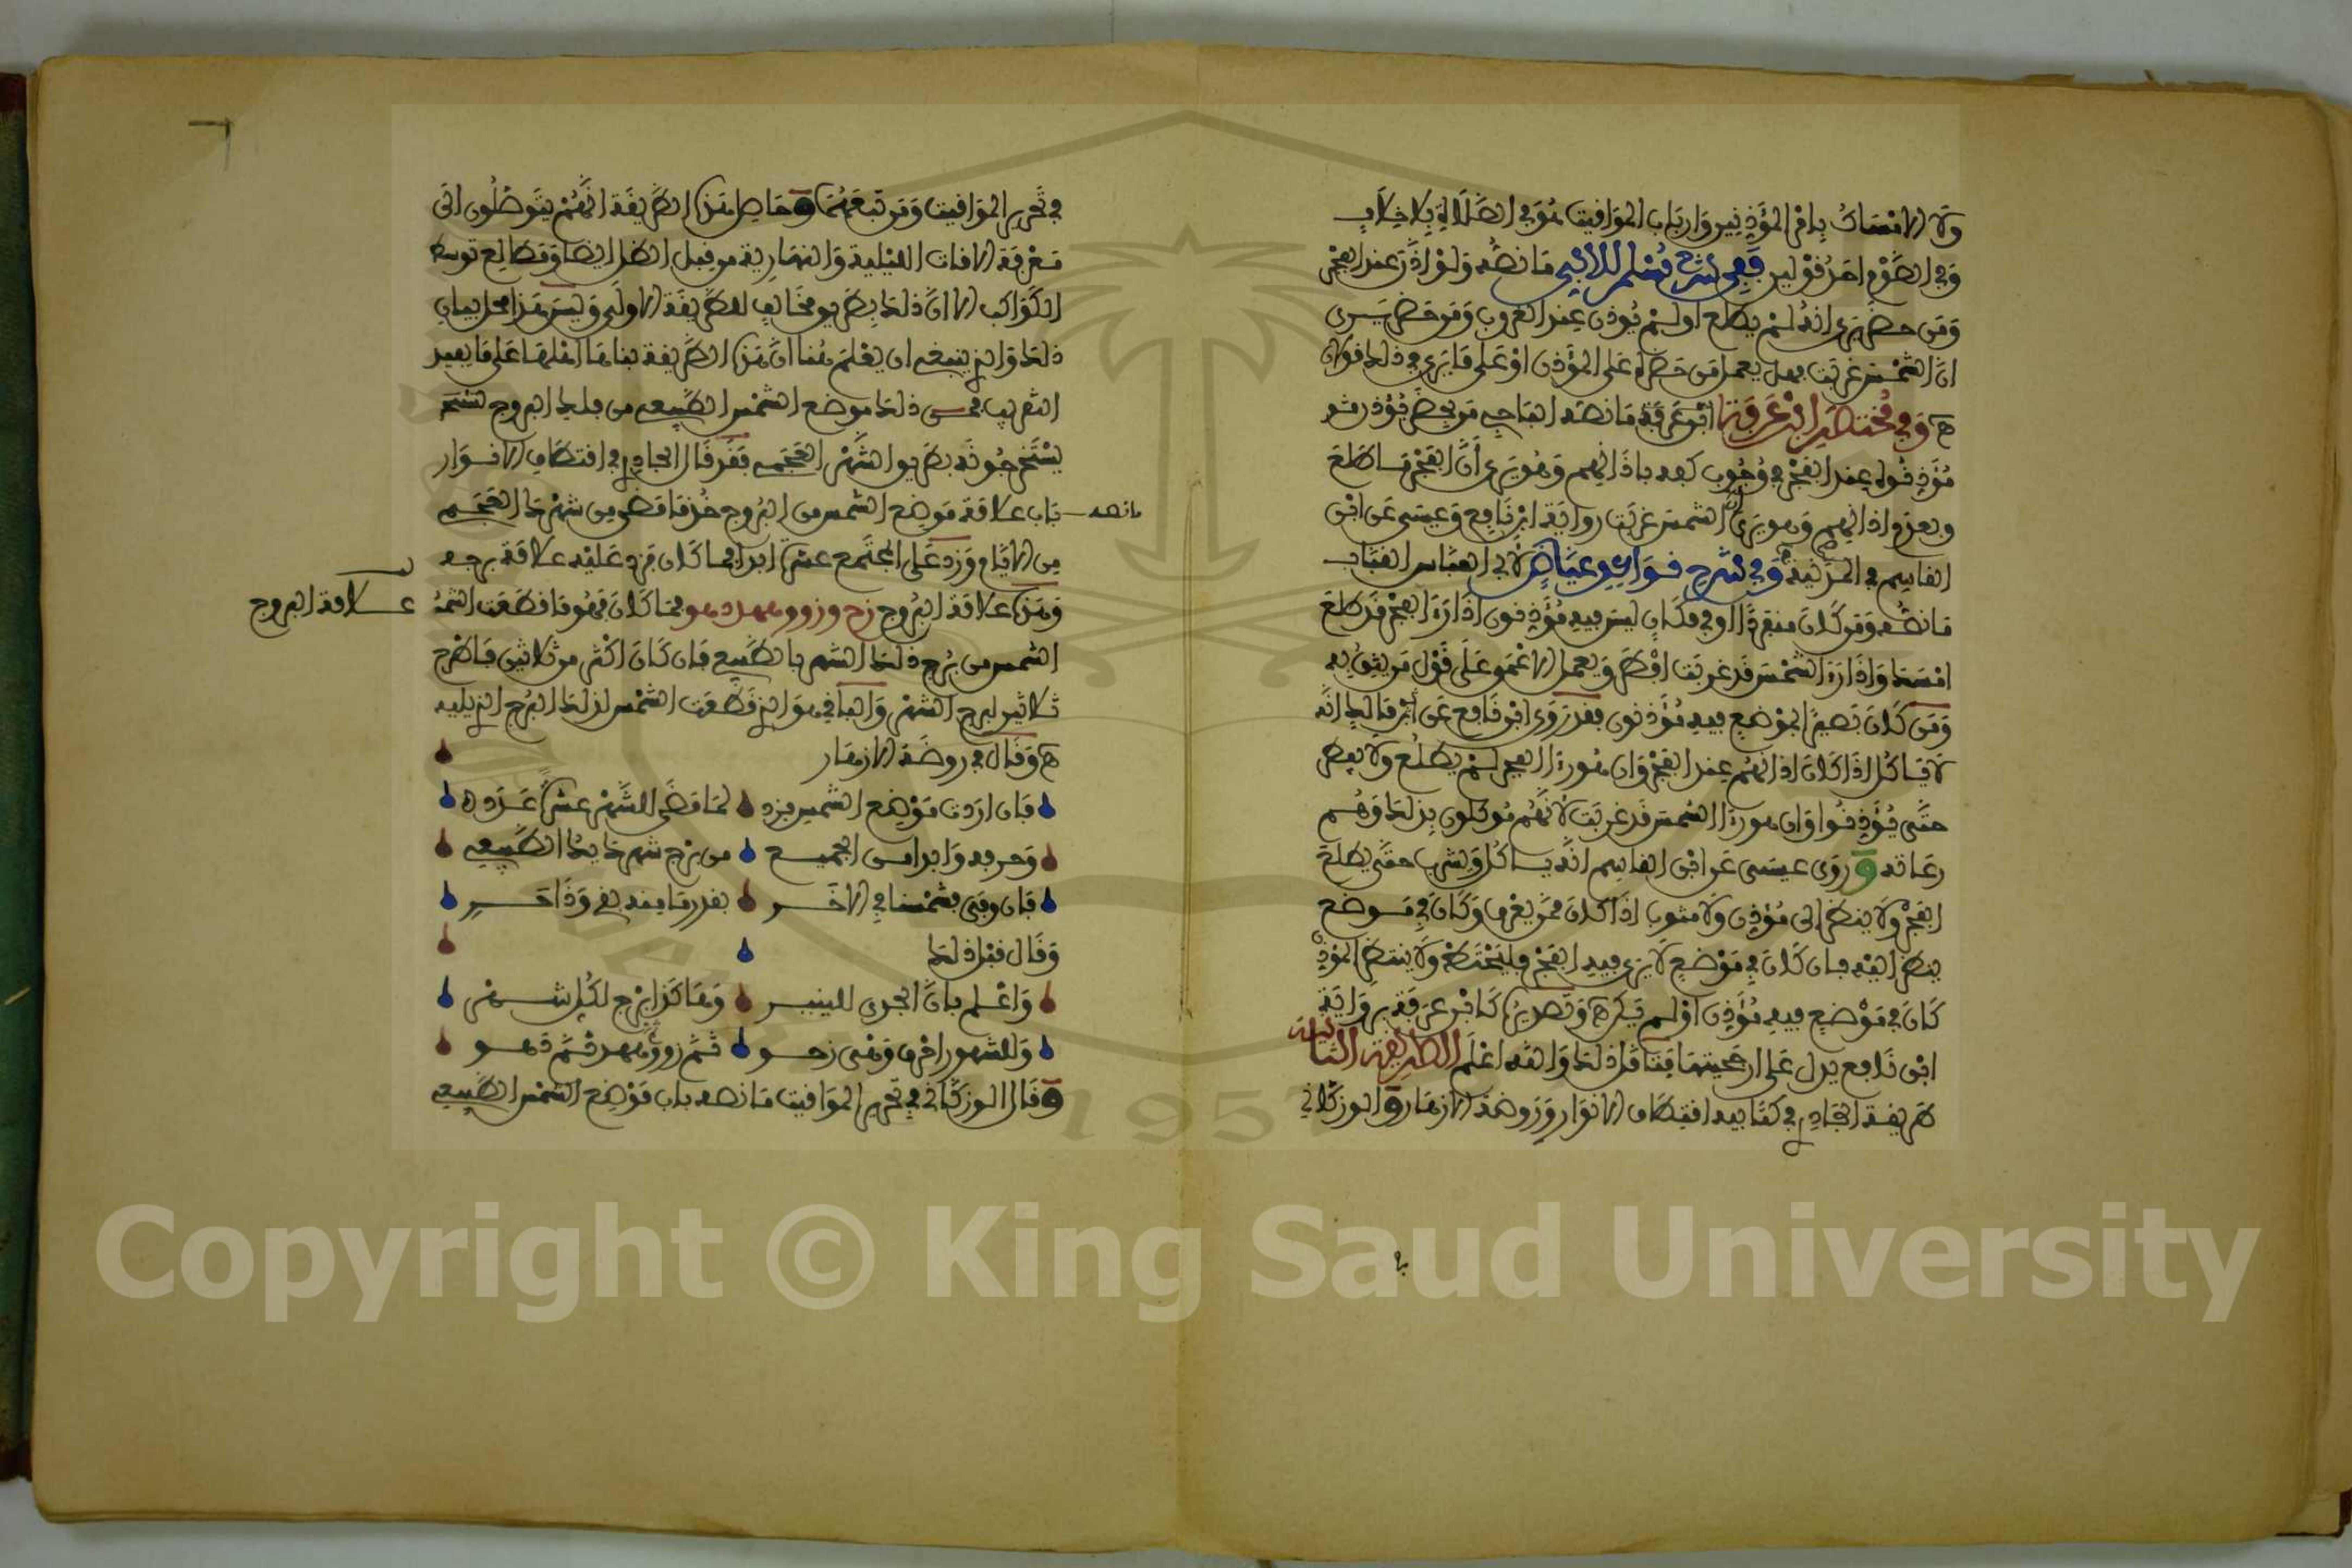 ولا الامساك بامر المؤذنين وارباب المواقيت هو في الصلاة بلا خلاف
وفي الصوم احد قولين ففي شرح مسلم للابي ما نصه ولو اذن عند الفجر
ومن حضر يرى انه لم يطلع او لم يوذن عند الغروب ومن حضر يرى
ان الشمس غربت فهل يعمل من حضر على المؤذن او على ما يرى في ذلك قولان
وفي مختصر ابن عرفة ما نصه الباجي من بحضرة مؤذن
مؤذنوه عند الفجر في وجوب كفه باذانهم وهو يرى ان الفجر ما طلع
وبعدم اذانهم وهو يرى ان الشمس غربت رواية ابن نافع وعيسى عن ابن
القاسم في المدنية وفي شرح قواعد عياض لابي العباس القباب
ما نصه ومن كان منفردا او في مكان ليس فيه مؤذنون اذا راى الفجر قد طلع
امسك واذا راى الشمس قد غربت افطر ويعمل الاعمى على قول من يثق به
ومن كان بصيرا بموضع فيه مؤذنون فقد روى ابن نافع عن مالك انه
لا ياكل اذا كان اذانهم عند الفجر وان هو راى الفجر لم يطلع ولا يفطر
حتى يؤذنوا وان هو راى الشمس قد غربت لانهم موكلون بذلك وهم
رعاته وروى عيسى عن ابن القاسم انه ياكل ويشرب حتى يطلع
الفجر ولا ينظر الى مؤذن ولا مثوب اذا كان ممن يعرف وكان في موضع
ينظر اليه فان كان في موضع لا يرى فيه الفجر فليحتط ولا ينتظر المؤذن
كان في موضع فيه مؤذن او لم يكن وتصدير ابن عرفة برواية
ابن نافع يدل على ارجحيتها فتامل ذلك والله اعلم الطريقة الثالثة
طريقة الجادري في كتابيه اقتطاف الانوار وروضة الازهار والوزكاني
في تحرير المواقيت ومن تبعهما وحاصل هذه الطريقة انهم يتوصلون الى
معرفة الاوقات الليلية والنهارية من قبل الظل ايضا ومطالع توسط
الكواكب الا ان ذلك بطريق مخالف للطريقة الاولى وليس هذا محل بيان
ذلك والذي ينبغي ان يعلم هنا ان هذه الطريقة بناها اهلها على ما يفيد
التقريب فمن ذلك موضع الشمس الطبيعي من فلك البروج
يستخرجونه بطريق الشهر العجمي فقد قال الجادري في اقتطاف الانوار
ما نصه
باب علامة موضع الشمس من البروج خذ ما مضى من شهرك العجمي
من الايام وزد على المجتمع عشرا ابدا فما كان فزد عليه علامة برجه
وهذه علامة البروج زح وزوو هه د هو فما كان فهو ما قطعت
علامة البروج
الشمس من برج ذلك الشهر بالطبيعي فان كان اكثر من ثلاثين فاطرح
ثلاثين لبرج الشهر والباقي هو الذي قطعت الشمس لذلك البرج الذي يليه
وقال في روضة الازهار
فان اردت موضع الشمس فزد لما مضى للشهر عشرا عدده
وحرفه وابدا من الجميع من برج شهر ذلك الطبيعي
وقال قبل ذلك
واعلم بان الجدي لليناير وهكذا برج لكل شهر
وقال الوزكاني في تحرير المواقيت ما نصه باب موضع الشمس الطبيعي
Copyright © King Saud University
1957